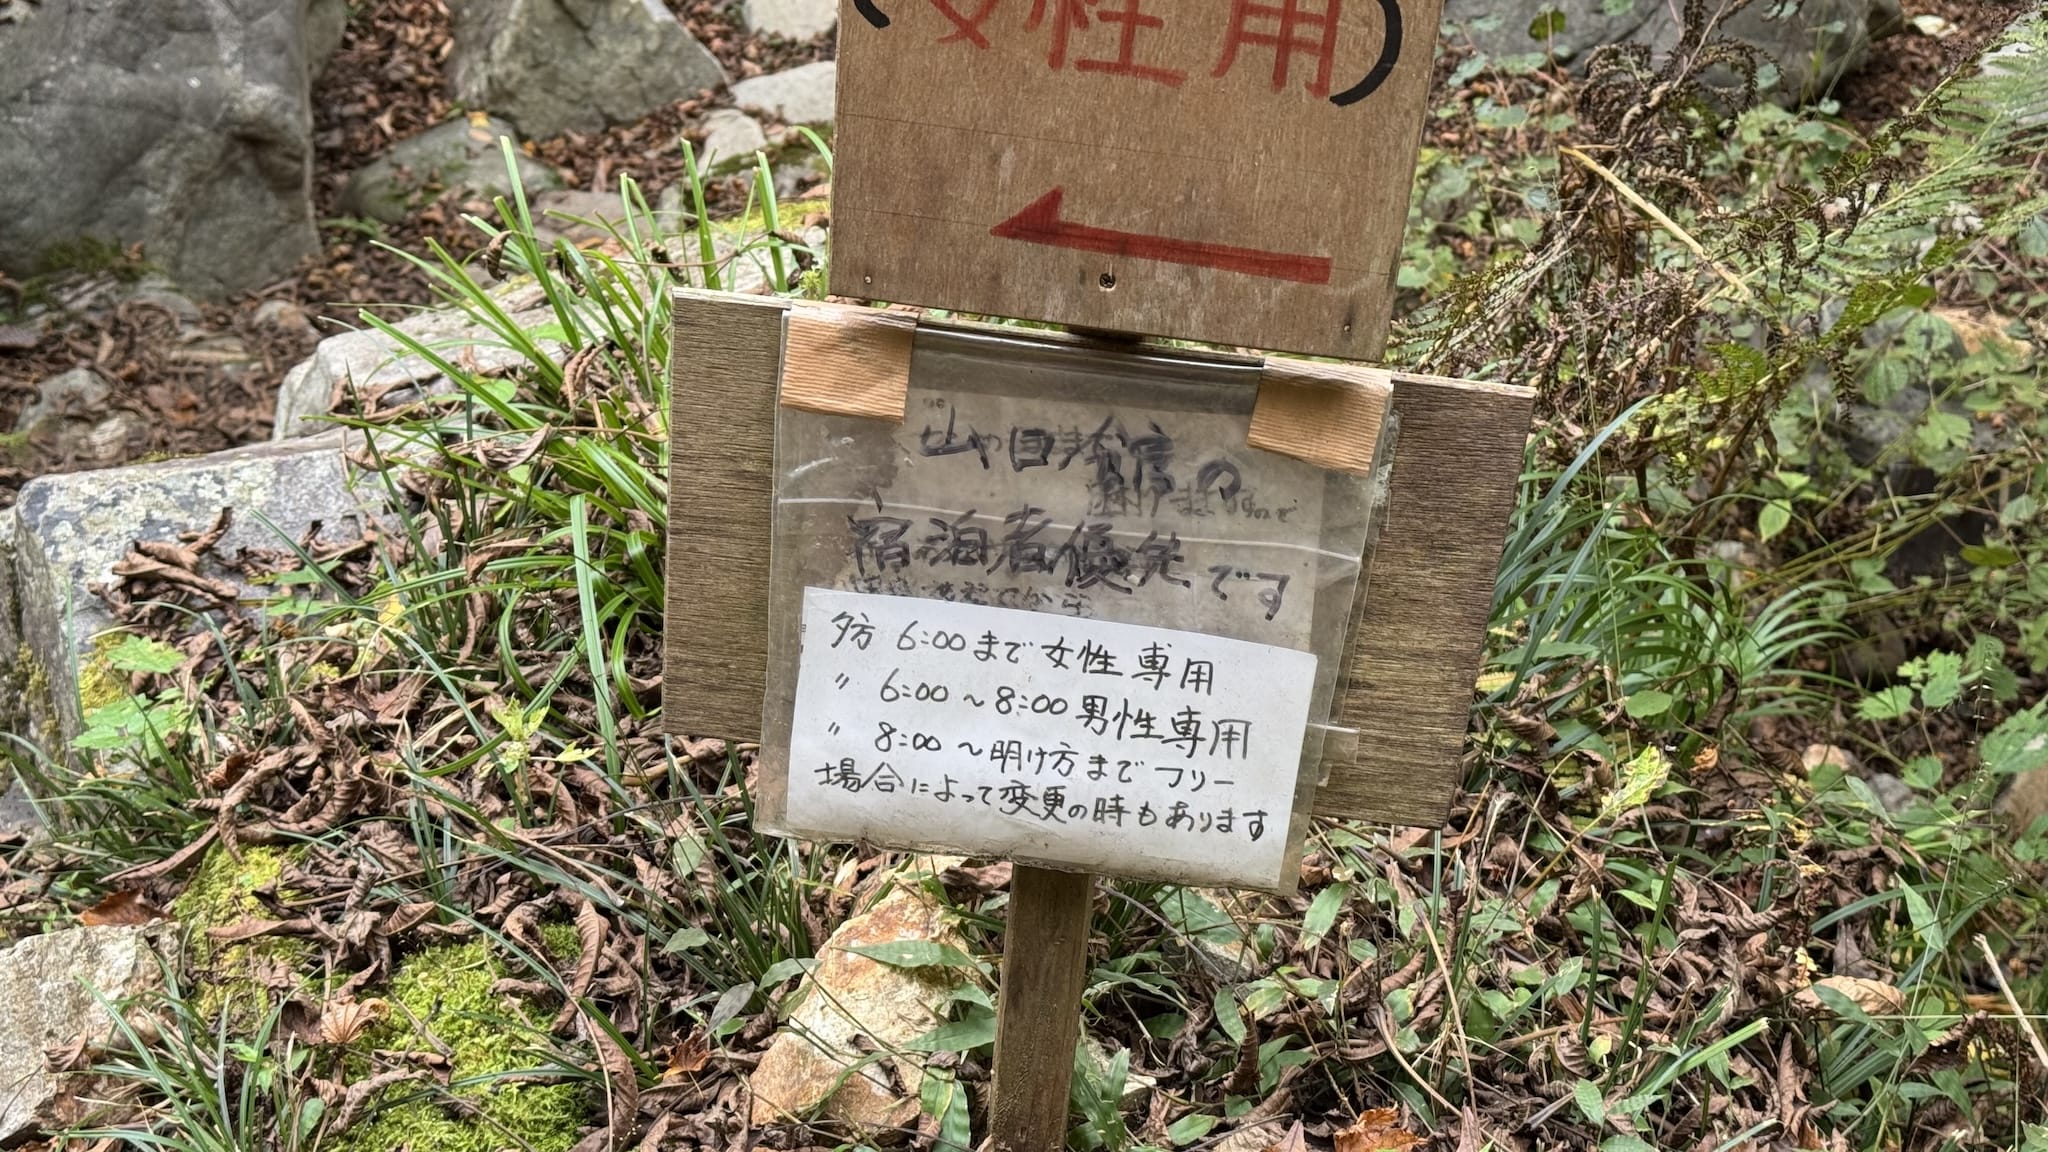 (女性用)
の
宿泊者優先です
夕方 6:00まで女性専用
〃 6:00～8:00男性専用
〃 8:00～明け方までフリー
場合によって変更の時もあります